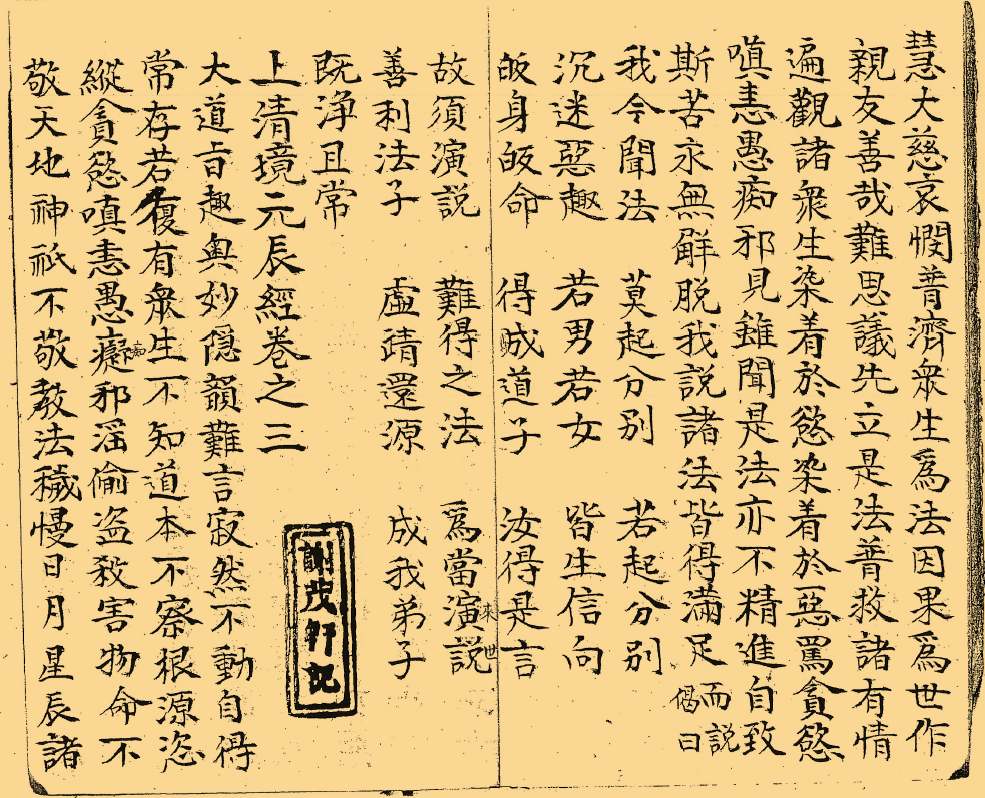 慧大慈哀憫普濟衆生爲法因果爲世作
親友善哉難思議先立是法普救諸有情
遍觀諸衆生染着於慾染着於惡罵貪慾
嗔恚愚痴邪見雖聞是法亦不精進自致
斯苦永無觧脱我説諸法皆得滿足而説偈曰
我今聞法 莫起分别 若起分别
沉迷惡趣 若男若女 皆生信向
皈身皈命 得成道子 汝得是言
故須演説 難得之法 爲當來世演説
善利法子 虛靖還源 成我弟子
既浄且常
上清境元辰經卷之三
大道旨趣奥妙隠韻難言寂然不動自得
常存若復有衆生不知道本不察根源恣
縱貪慾嗔恚愚癡痴邪滛偷盗殺害物命不
敬天地神祇不敬教法穢慢日月星辰諸
謝茂軒記